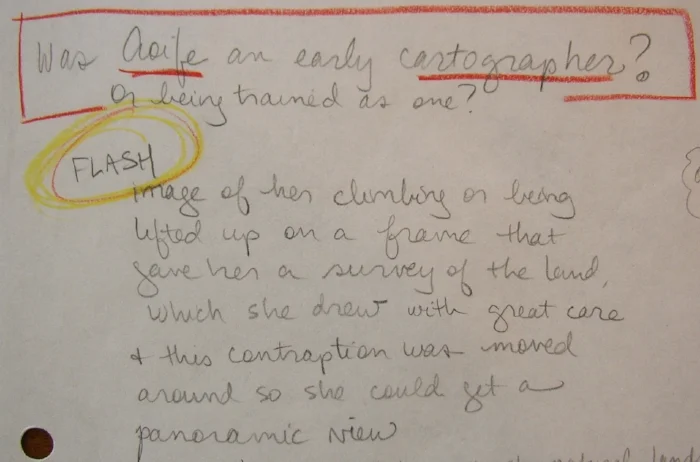 Was Aoife an early cartographer?
or being trained as one?
FLASH
image of her climbing or being
lifted up on a frame that
gave her a survey of the land,
which she drew with great care
& this contraption was moved
around so she could get a
panoramic view
land